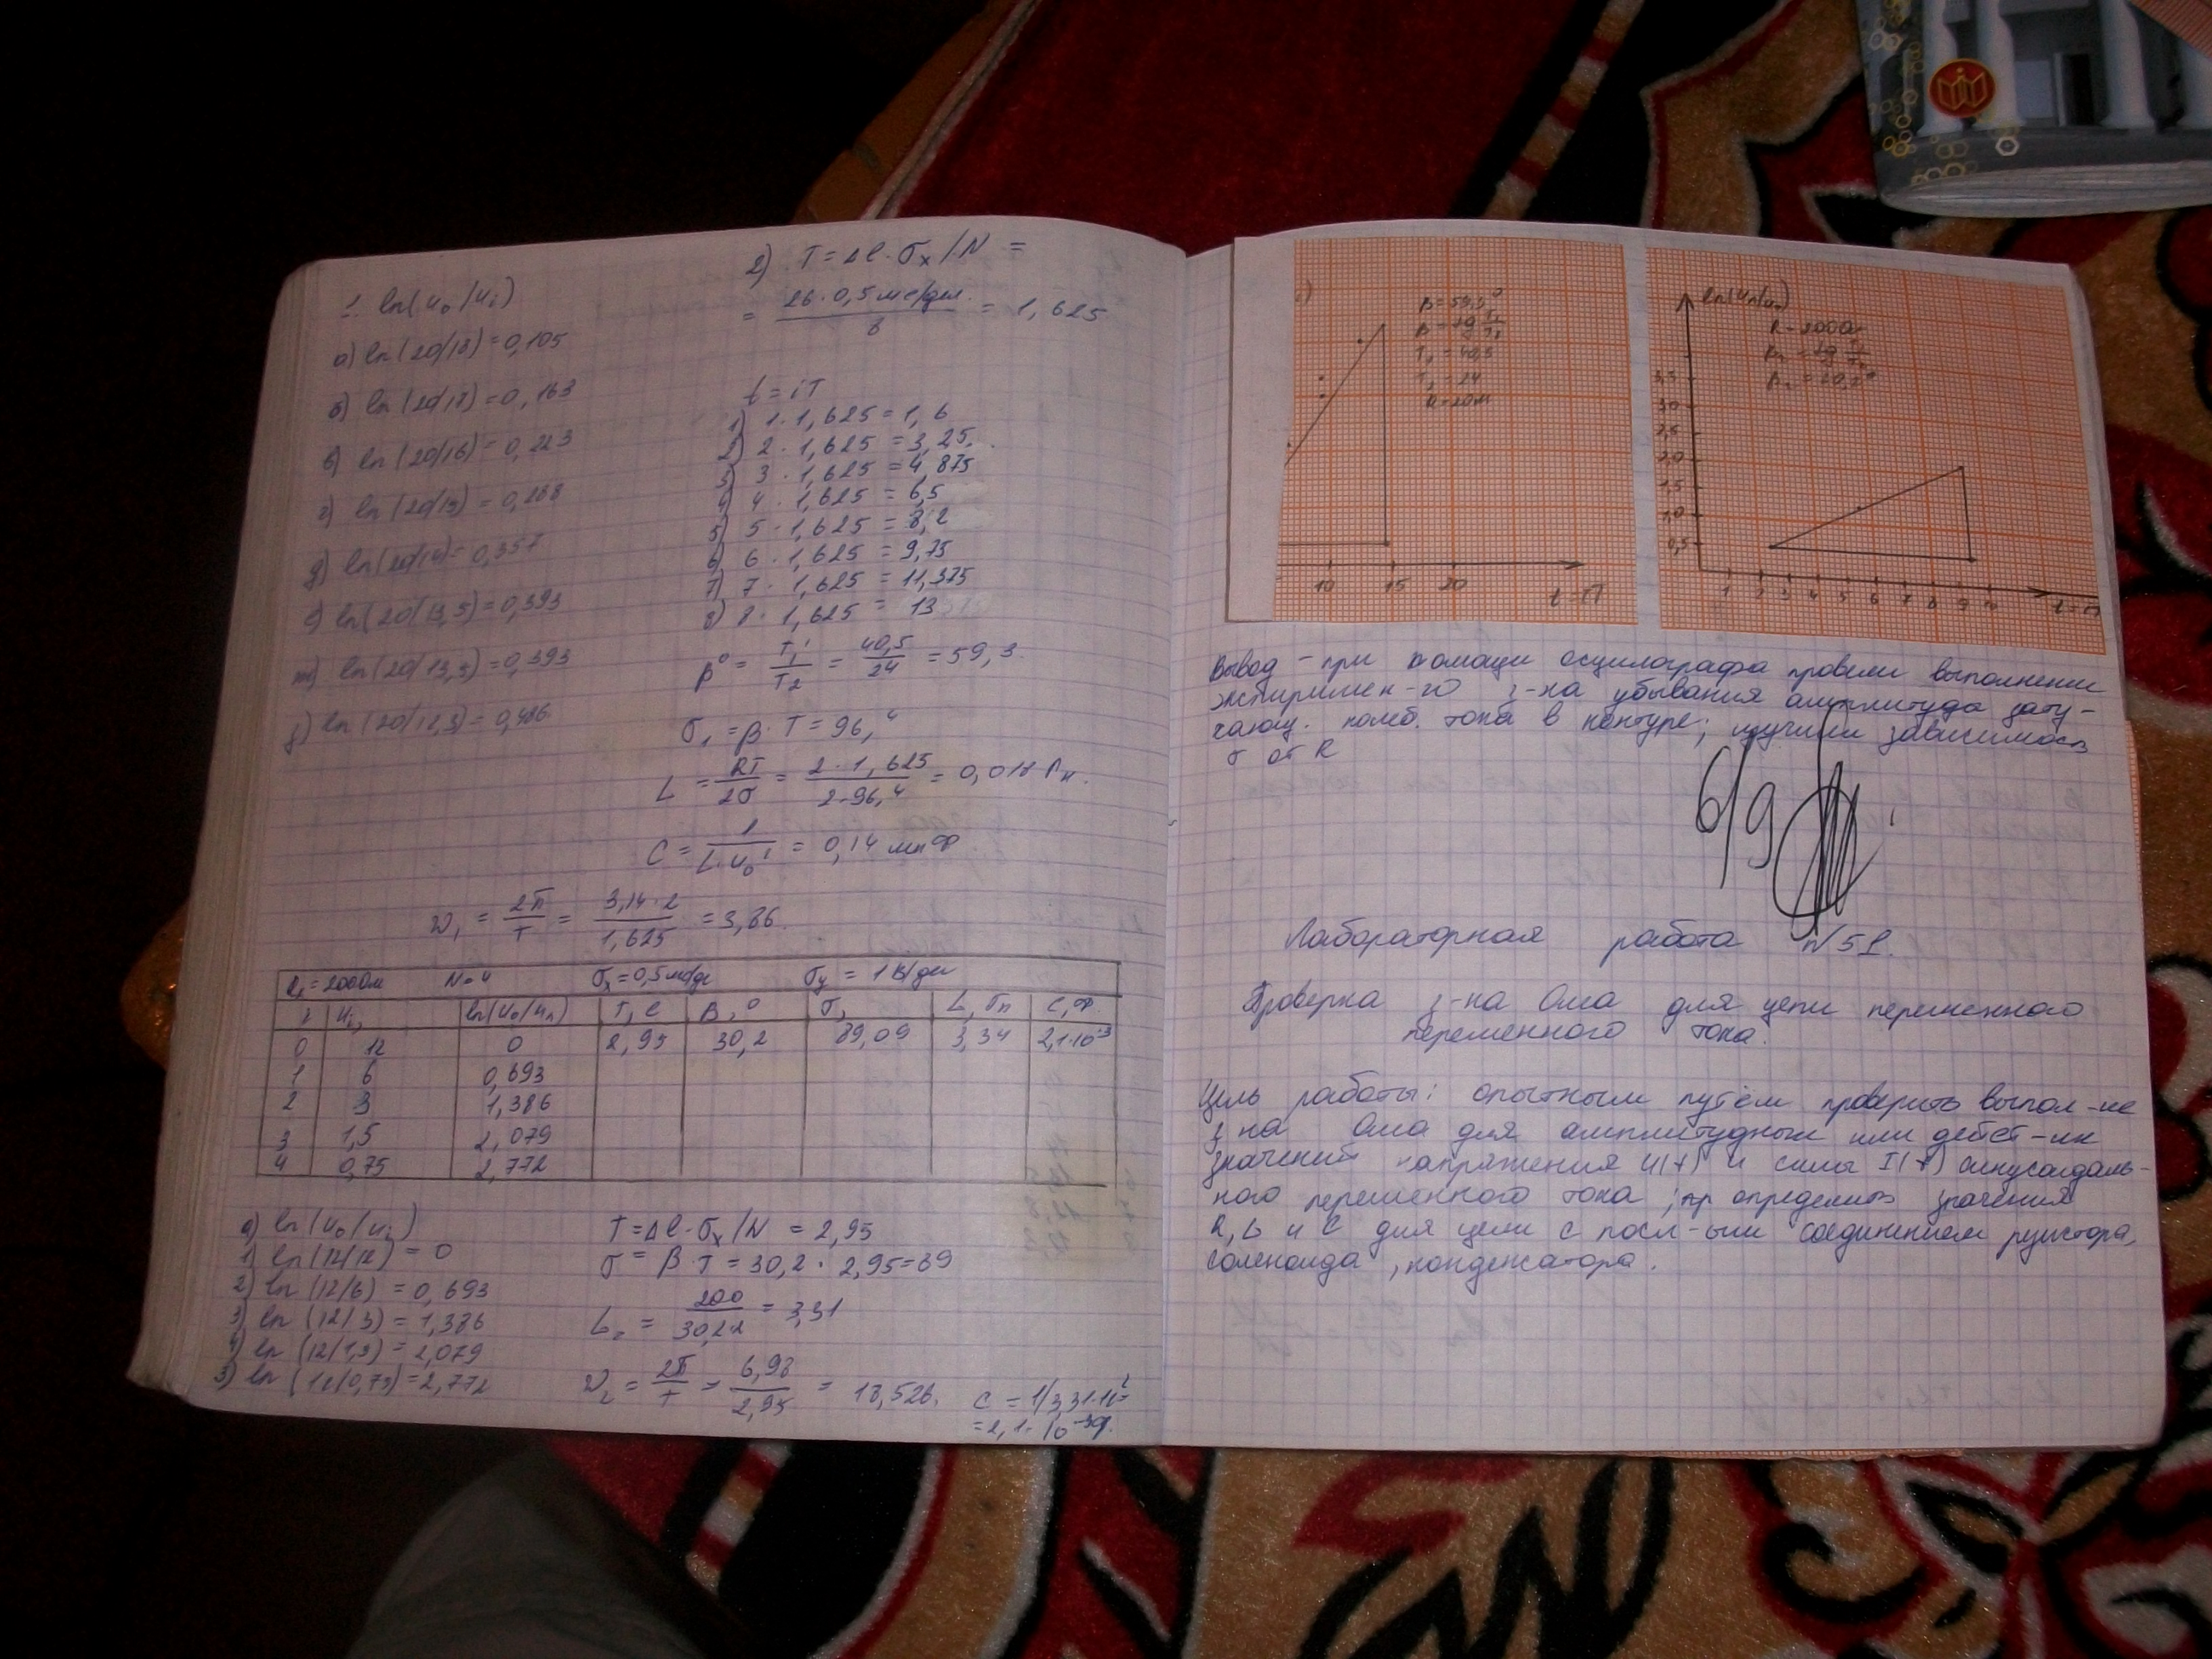 1. ln(u₀/uᵢ)
а) ln(20/18)=0,105
б) ln(20/17)=0,163
в) ln(20/16)=0,223
г) ln(20/15)=0,288
д) ln(20/14)=0,357
е) ln(20/13,5)=0,393
ж) ln(20/13,5)=0,393
з) ln(20/12,3)=0,486
2) T=Δl·σₓ/N =
= 26·0,5 мс/дел. / 8 = 1,625
t=iT
1) 1·1,625=1,6
2) 2·1,625=3,25
3) 3·1,625=4,875
4) 4·1,625=6,5
5) 5·1,625=8,2
6) 6·1,625=9,75
7) 7·1,625=11,375
8) 8·1,625=13
β° = T₁/T₂ = 40,5/24 = 59,3
σ₁=β·T=96,4
L = RT/2σ = 2·1,625/2·96,4 = 0,017 Гн.
C = 1/L·u₀² = 0,14 мкФ
ω₁ = 2π/T = 3,14·2/1,625 = 3,86
R₂=200Ом N=4 σₓ=0,5мс/дел σᵧ=1В/дел
i uᵢ, ln(u₀/uₙ) T, c β,° σ, L, Гн C, Ф
0 12 0 2,95 30,2 89,09 3,34 2,1·10⁻³
1 6 0,693
2 3 1,386
3 1,5 2,079
4 0,75 2,772
а) ln(u₀/uᵢ)
1) ln(12/12)=0
2) ln(12/6)=0,693
3) ln(12/3)=1,386
4) ln(12/1,5)=2,079
5) ln(12/0,75)=2,772
T=Δl·σₓ/N=2,95
σ=β·T=30,2·2,95=89
L₂ = 200/30,22 = 3,31
ω₂ = 2π/T = 6,98/2,95 = 18,526.
C = 1/3,31·11²=
=2,1·10⁻³Ф.
β=59,3°
β=tg T₁/T₂
T₁=40,5
T₂=24
R=2Ом
10 15 20
t=iT
ln(uₙ/u₀)
R=200Ом
3,5
3,0
2,5
2,0
1,5
1,0
0,5
1 2 3 4 5 6 7 8 9 10
t=iT
Вывод – при помощи осцилографа провели выполнении
экспиримен-го з-на убывания амплитуда зату-
хающ. колеб. тока в контуре; изучили зависимость
σ от R
Лабораторная работа №52.
Проверка з-на Ома для цепи переменного
переменного тока.
Цель работы: опытным путём проверить выпол-ие
з-на Ома для амплитудным или дейст-их
значений напряжения u(t) и силы I(t) синусоидаль-
ного переменного тока; определить значения
R, L и C для цепи с посл-ым соединением резистора,
соленоида, конденсатора.